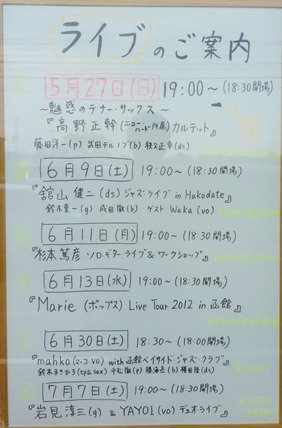 ライブのご案内
5月27日(日) 19:00〜(18:30開場)
〜魅惑のテナー・サックス〜
『高野正幹(ニューハード所属)カルテット』
6月9日(土) 19:00〜(18:30開場)
『舘山健二(ds)ジャズ・ライブ in Hakodate』
鈴木重一(g) 成田徹(b) ゲスト Waka(vo)
6月11日(月) 19:00〜(18:30開場)
『杉本篤彦 ソロギターライブ&ワークショップ』
6月13日(水) 19:00〜(18:30開場)
『Marie (ポップス) Live Tour 2012 in 函館』
6月30日(土) 18:30〜(18:00開場)
『mahko(マーコ・vo) with 函館ベイサイドジャズ・クラブ』
7月7日(土) 19:00〜(18:30開場)
『岩見淳三(g) & YAYOI(vo) デュオライブ』